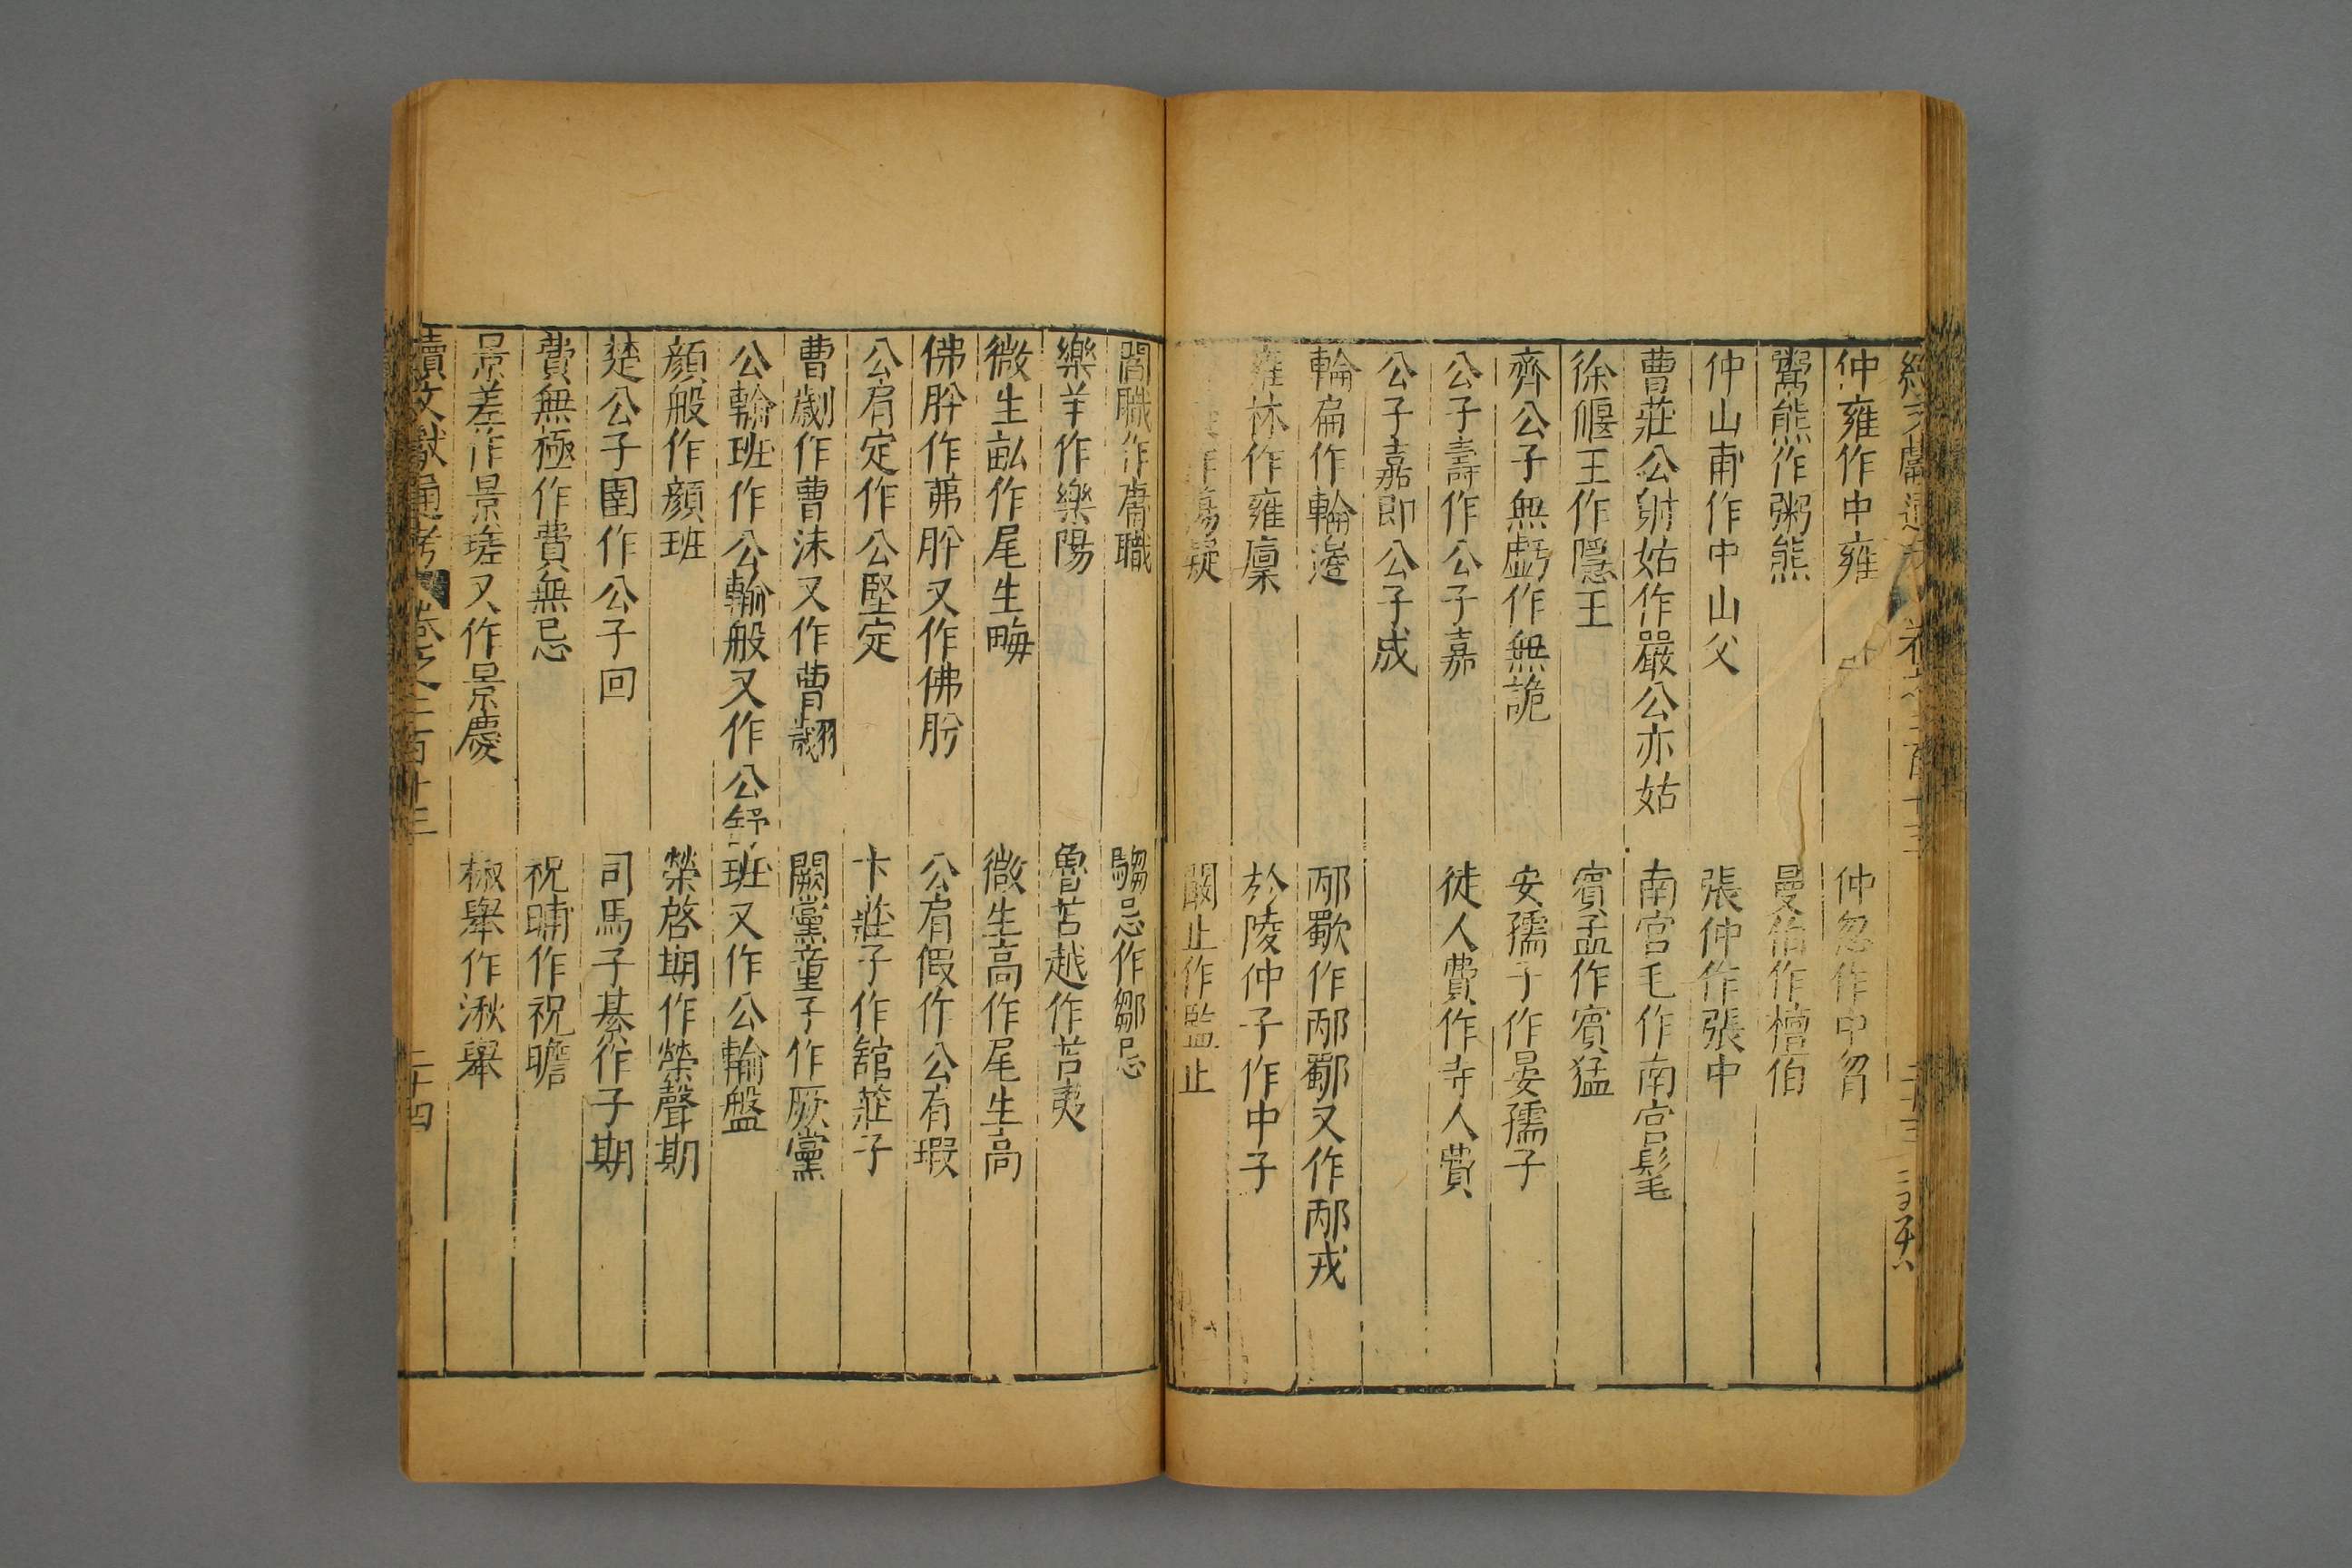 仲雍作中雍　仲忽作中曶
鬻熊作粥熊　曼伯作檀伯
仲山甫作中山父　張仲作張中
曹莊公射姑作嚴公亦姑　南宮毛作南宮髦
徐偃王作隱王　賓孟作賓猛
齊公子無虧作無詭　安孺子作晏孺子
公子壽作公子嘉　徒人費作寺人費
公子嘉即公子成
輪扁作輪邊　邴歜作邴鄐又作邴戎
雍林作雍廩　於陵仲子作中子
闞止作監止
閻職作庸職　騶忌作鄒忌
樂羊作樂陽　魯苦越作苫夷
微生畝作尾生畮　微生高作尾生高
佛肸作茀肸又作佛肹　公肩假作公有瑕
公肩定作公堅定　卞莊子作舘莊子
曹劌作曹沬又作曹翽　闕黨童子作厥黨
公輸班作公輸般又作公班又作公輸盤
顏般作顏班　榮啓期作榮聲期
楚公子圍作公子回　司馬子綦作子期
費無極作費無忌　祝聃作祝瞻
景差作景瑳又作景慶　椒舉作湫舉
續文獻通考　卷之二百十三　二十四